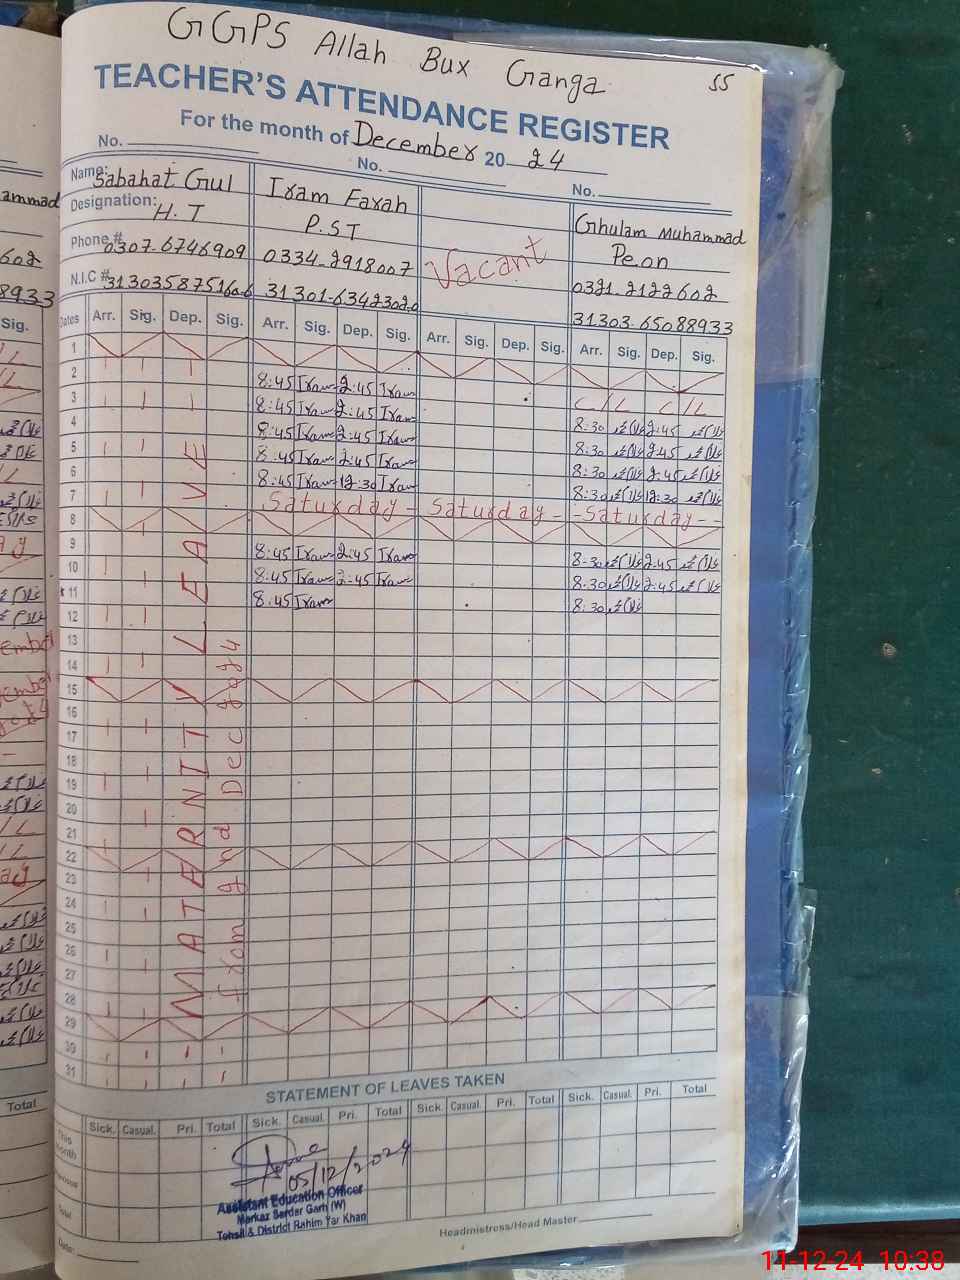 GGPS Allah Bux Ganga
55
TEACHER'S ATTENDANCE REGISTER
For the month of December 20 24
No. No. No.
Name: Sabahat Gul Iram Farah Ghulam Muhammad
Designation: H.T P.ST Vacant Peon
Phone # 0307-6746909 0334-2918007 0321.2122602
N.I.C # 31303.65088933
Dates Arr. Sig. Dep. Sig. Arr. Sig. Dep. Sig. Arr. Sig. Dep. Sig. Arr. Sig. Dep. Sig.
1
2 8:45 Iram 2:45 Iram
3 8:45 Iram 2:45 Iram C/L C/L
4 8:45 Iram 2:45 Iram 8:30 2:45
5 8:45 Iram 2:45 Iram 8:30 2:45
6 8:45 Iram 12:30 Iram 8:30 2:45
7 Saturday - Saturday - - Saturday - - 8:30 12:30
8
9 8:45 Iram 2:45 Iram 8:30 2:45
10 8:45 Iram 2:45 Iram 8:30 2:45
11 8:45 Iram 8:30
12
13
14
15
16
17
18
19
20
21
22
23
24
25
26
27
28
29
30
31
MATERNITY LEAVE
from 2nd Dec 2024
STATEMENT OF LEAVES TAKEN
Sick. Casual. Pri. Total Sick. Casual. Pri. Total Sick. Casual. Pri. Total Sick. Casual. Pri. Total
This Month
Total
Date:
05/12/2024
Assistant Education Officer
Markaz Sardar Garh (W)
Tehsil & District Rahim Yar Khan
Headmistress/Head Master
Total
11-12-24 10:38